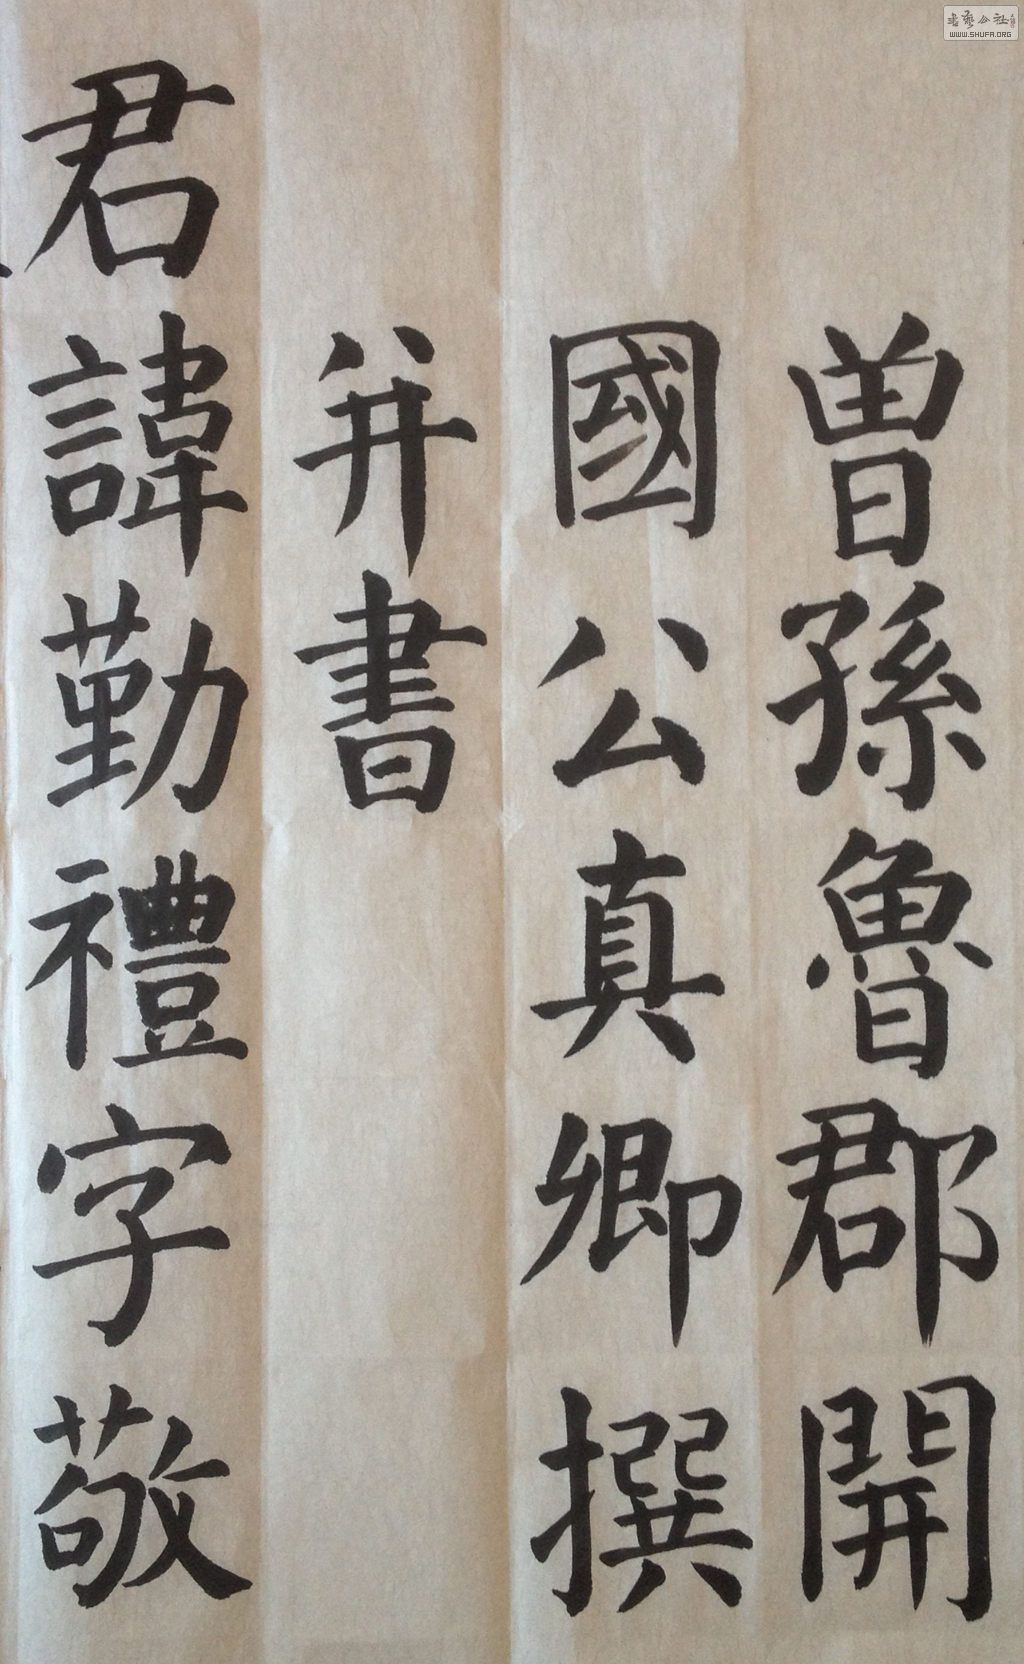 曾孫魯郡開
國公真卿撰
并書
君諱勤禮字敬
書藝公社
WWW.SHUFA.ORG